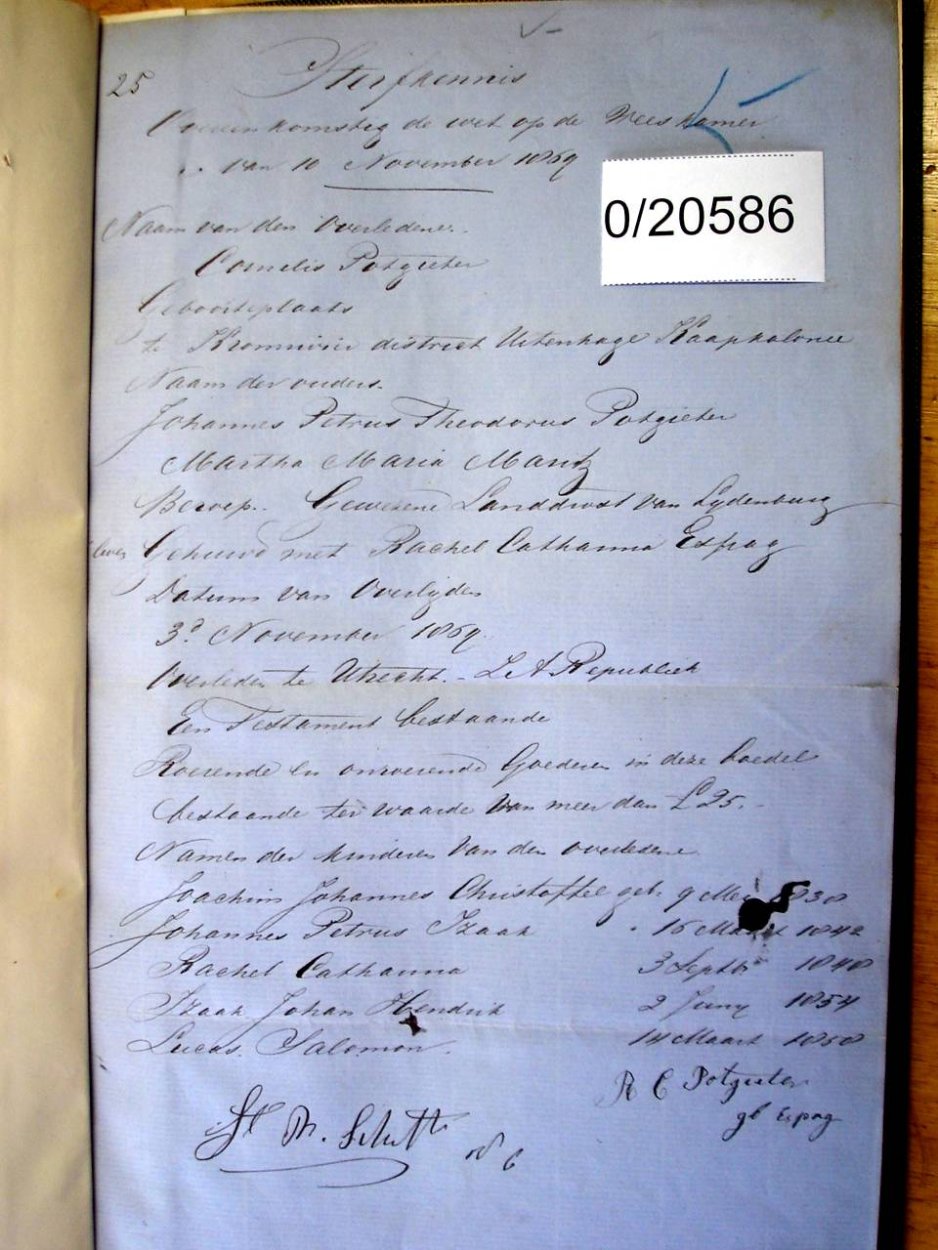 25
Sterfkennis
Overeenkomstig de wet op de Weeskamer
van 10 November 1869
0/20586
Naam van den Overledene.
Cornelis Potgieter
Geboorteplaats
te Kromrivier district Uitenhage Kaapkolonie
Naam der ouders.
Johannes Petrus Theodorus Potgieter
Martha Maria Maritz
Beroep. Gewesene Landdrost van Lydenburg
Gehuwd met Rachel Catharina Espag
Datum van Overlijden
3d November 1869
Overleden te Utrecht. - Z. A. Republiek
Een Testament bestaande
Roerende en onroerende Goederen in deze boedel
bestaande ter waarde van meer dan £25.-
Namen der kinderen van den overledene
Joachim Johannes Christoffel geb. 9 Mei
Johannes Petrus Izaak 16 Maart
Rachel Catharina 3 Septbr 1848
Izaak Johan Hendrik 2 Juny 1854
Lucas Salomon. 14 Maart 1858
R C Potgieter
gb Espag